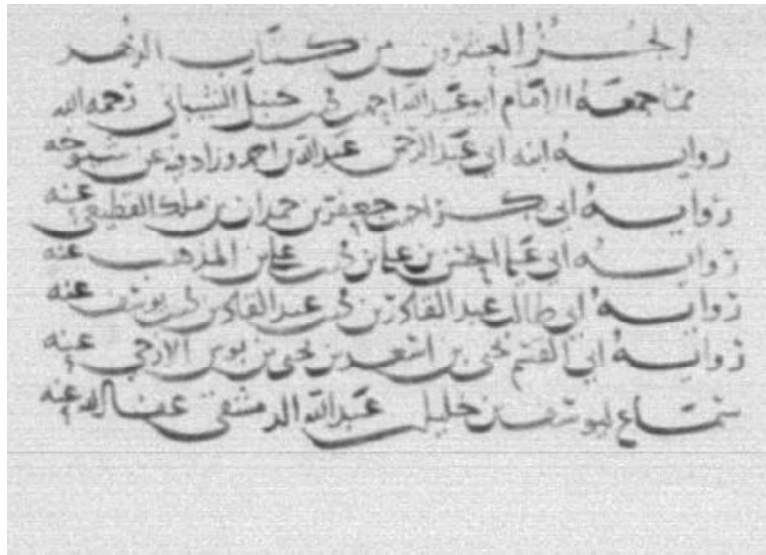 الجزء العشرون من كتاب الزهد
مما جمعه الإمام أبو عبد الله احمد بن محمد بن حنبل الشيباني رحمه الله
رواية ابنه ابي عبد الرحمن عبد الله بن احمد وزاد فيه عن شيوخه
رواية ابي بكر احمد بن جعفر بن حمدان بن ملك القطيعي عنه
رواية ابي علي الحسن بن علي بن محمد بن علي بن المذهب عنه
رواية ابي طالب عبد القادر بن محمد بن عبد القادر بن محمد بن يوسف عنه
رواية ابي القسم يحيى بن اسعد بن يحيى بن بوش الازجي عنه
سماع ليوسف بن خليل بن عبد الله الدمشقي عفا الله عنه